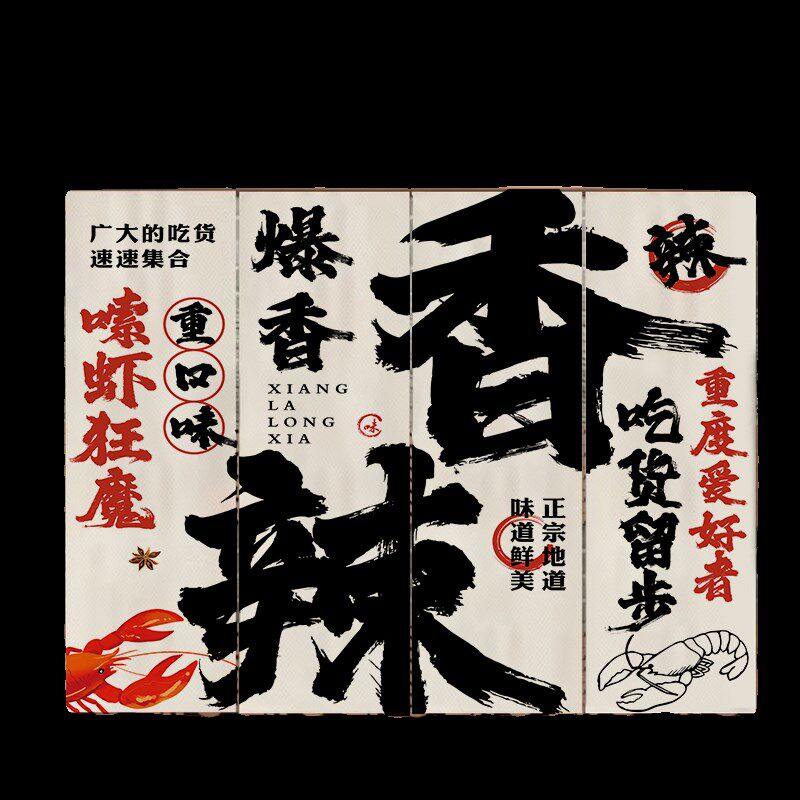 广大的吃货
速速集合
嗦虾狂魔
重口味
爆香
XIANG
LA
LONG
XIA
味
香辣
正宗地道
味道鲜美
辣
重度爱好者
吃货留步